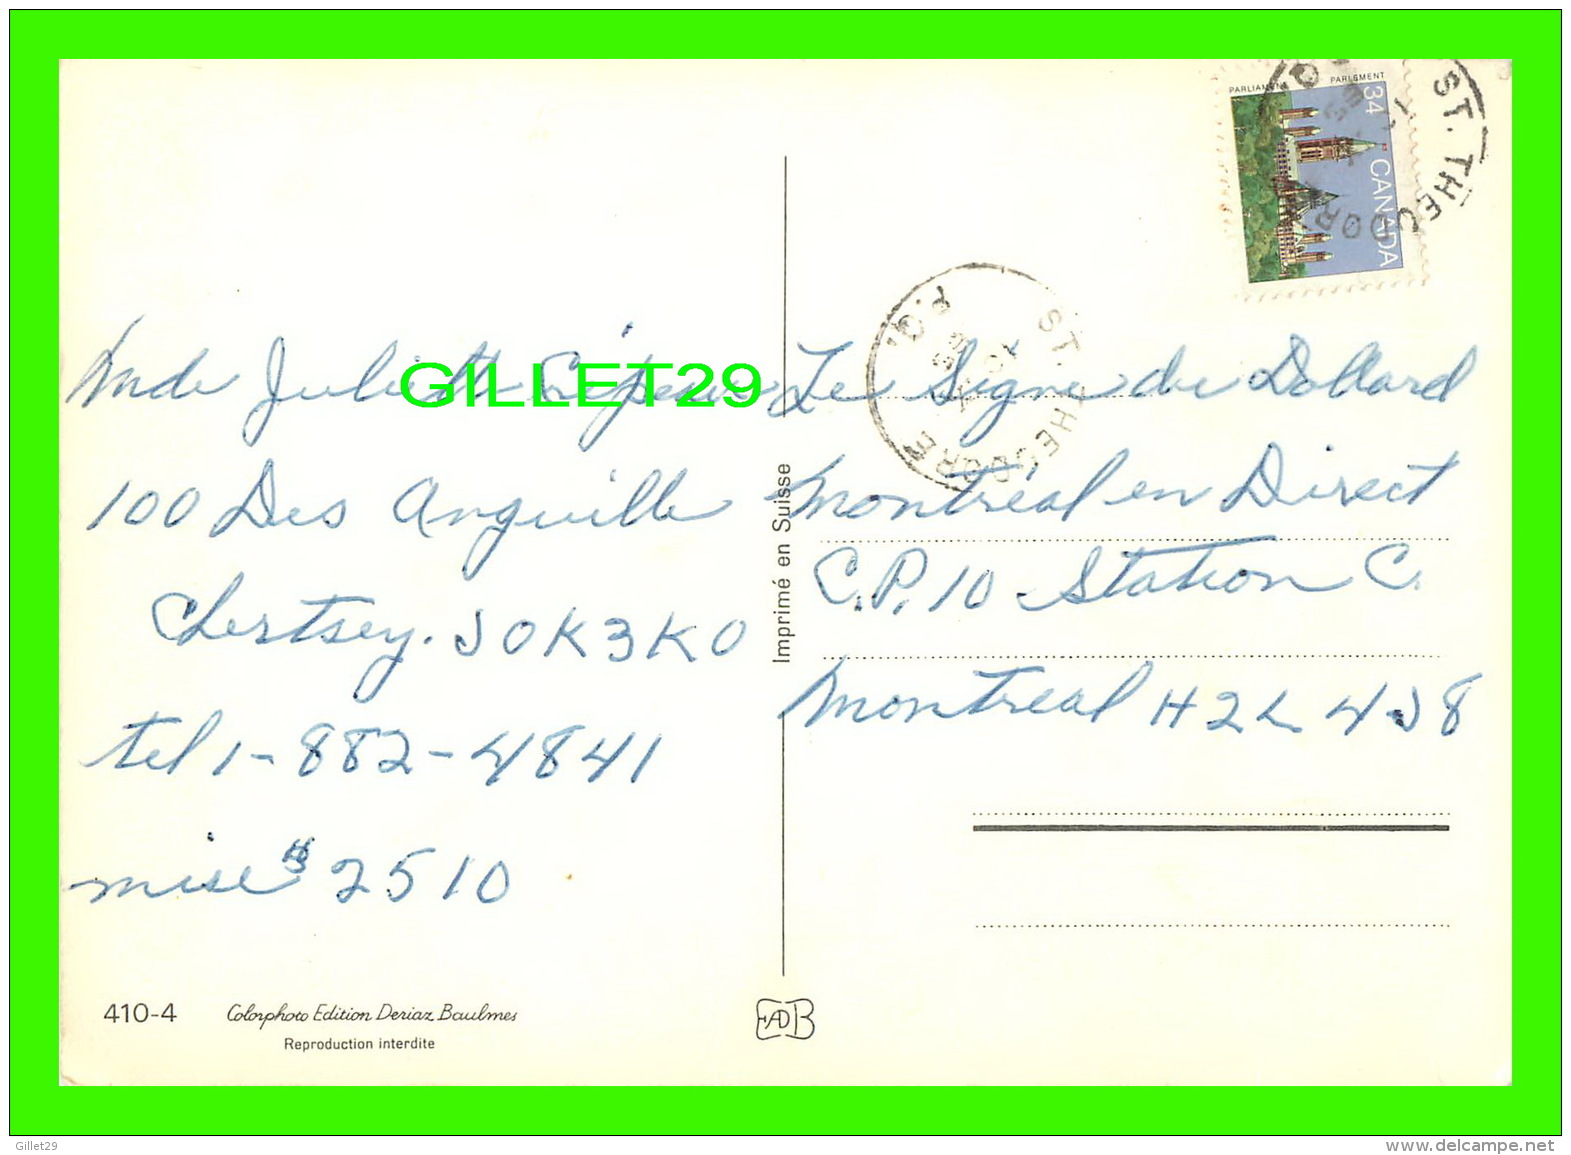 PARLIAMENT PARLEMENT
34
CANADA
ST. THEODORE
P.Q.
ST. THEODORE
P.Q.
Mde Juliette Lépeau
GILLET29
100 Des Anguille
Chertsey. J0K3K0
tel 1-882-4841
mise $ 2510
Le Signe du Dollard
Montreal en Direct
C.P. 10 Station C.
Montreal H2L 4J8
Imprimé en Suisse
410-4 Colorphoto Edition Deriaz Baulmes
Reproduction interdite
EADB
Gillet29
www.delcampe.net